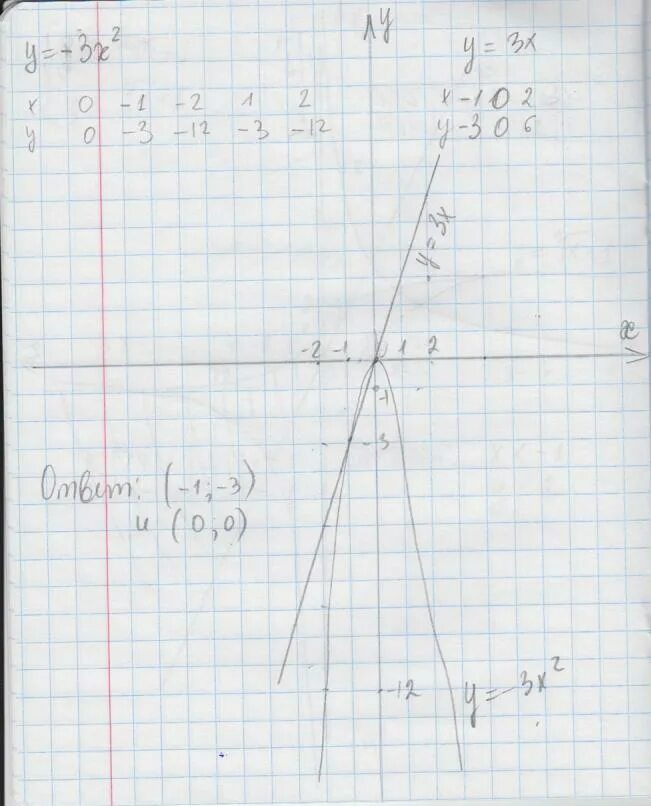 y = -3x²
x 0 -1 -2 1 2
y 0 -3 -12 -3 -12
y
y = 3x
x -1 0 2
y -3 0 6
y = 3x
x
-2 -1 0 1 2
-1
-3
Ответ: (-1; -3)
и (0; 0)
-12
y = -3x²